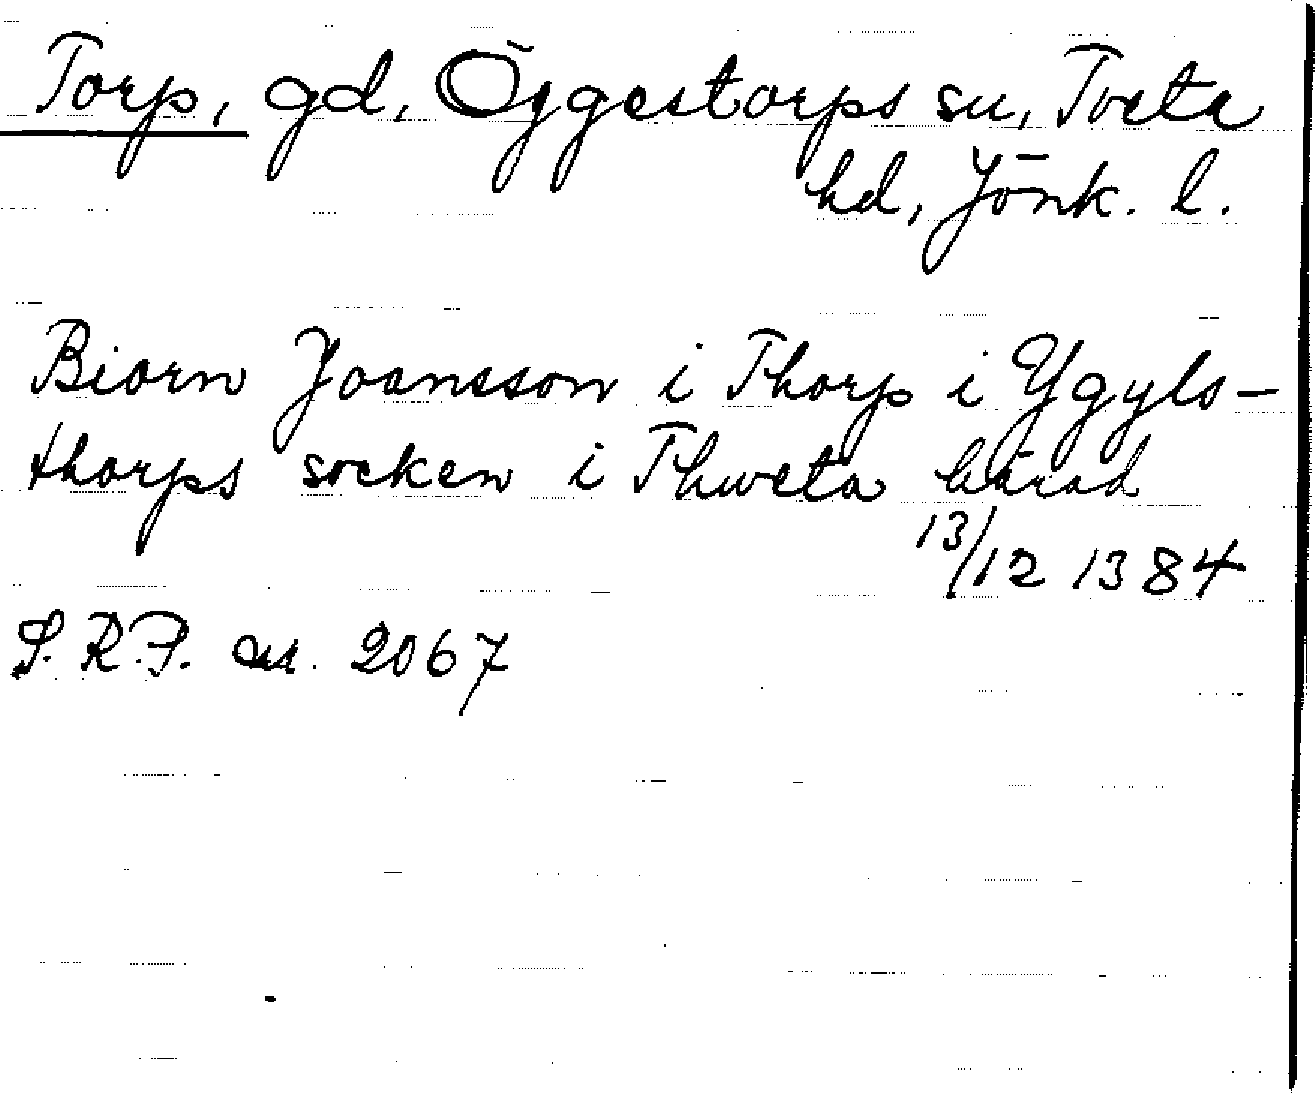 Torp, gd, Öggestorps sn, Tveta
hd, Jönk. l.
Biorn Joansson i Thorp i Ygyls-
thorps socken i Thweta härad
13/12 1384
S.R.P. nr. 2067